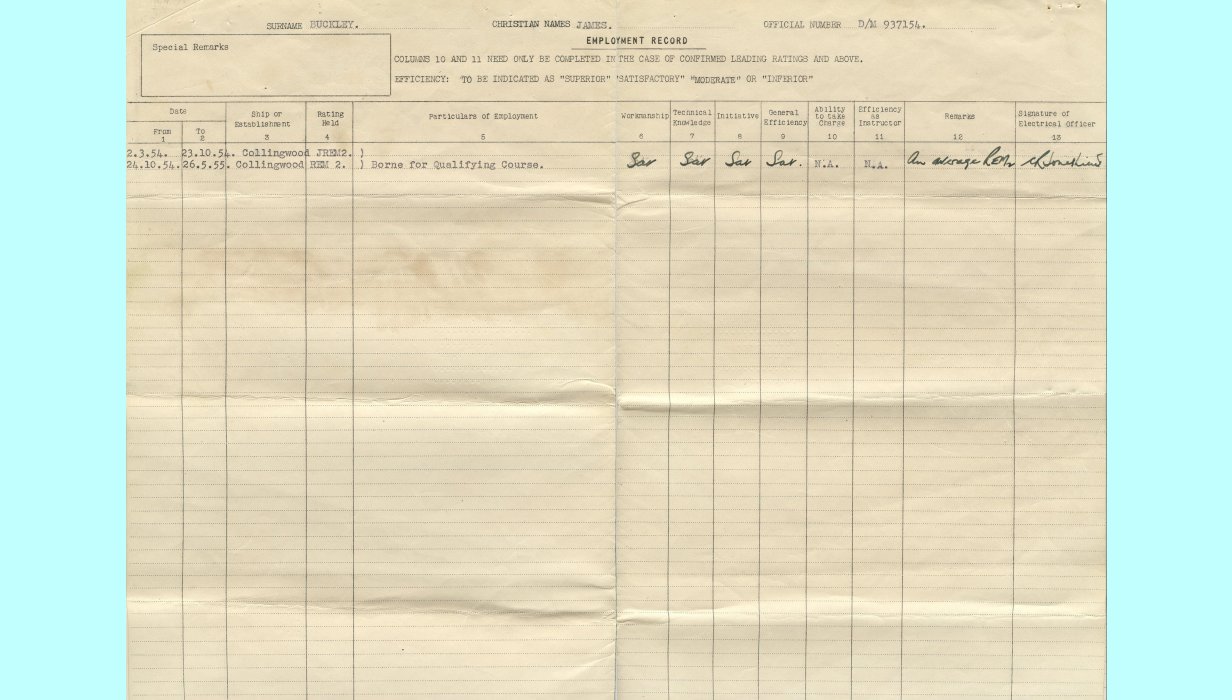 SURNAME BUCKLEY. CHRISTIAN NAMES JAMES. OFFICIAL NUMBER D/M 937154.
EMPLOYMENT RECORD
Special Remarks
COLUMNS 10 AND 11 NEED ONLY BE COMPLETED IN THE CASE OF CONFIRMED LEADING RATINGS AND ABOVE.
EFFICIENCY: TO BE INDICATED AS "SUPERIOR" "SATISFACTORY" "MODERATE" OR "INFERIOR"
Date
From
1
To
2
Ship or
Establishment
3
Rating
Held
4
Particulars of Employment
5
Workmanship
6
Technical
Knowledge
7
Initiative
8
General
Efficiency
9
Ability
to take
Charge
10
Efficiency
as
Instructor
11
Remarks
12
Signature of
Electrical Officer
13
2.3.54. 23.10.54. Collingwood JREM2. )
24.10.54. 26.5.55. Collingwood REM 2. ) Borne for Qualifying Course. Sat Sat Sat Sat. N.A. N.A. An average REM